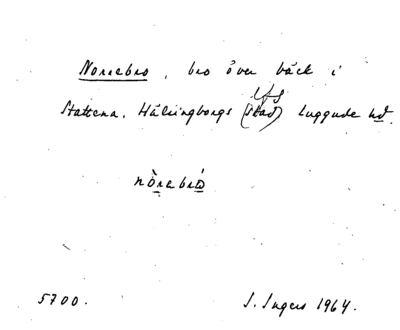 Norrebro, bro över bäck i
lfs
Stattena. Hälsingborgs (stad) Luggude hd
nò̱rebró̱
5700. I. Ingers 1964.